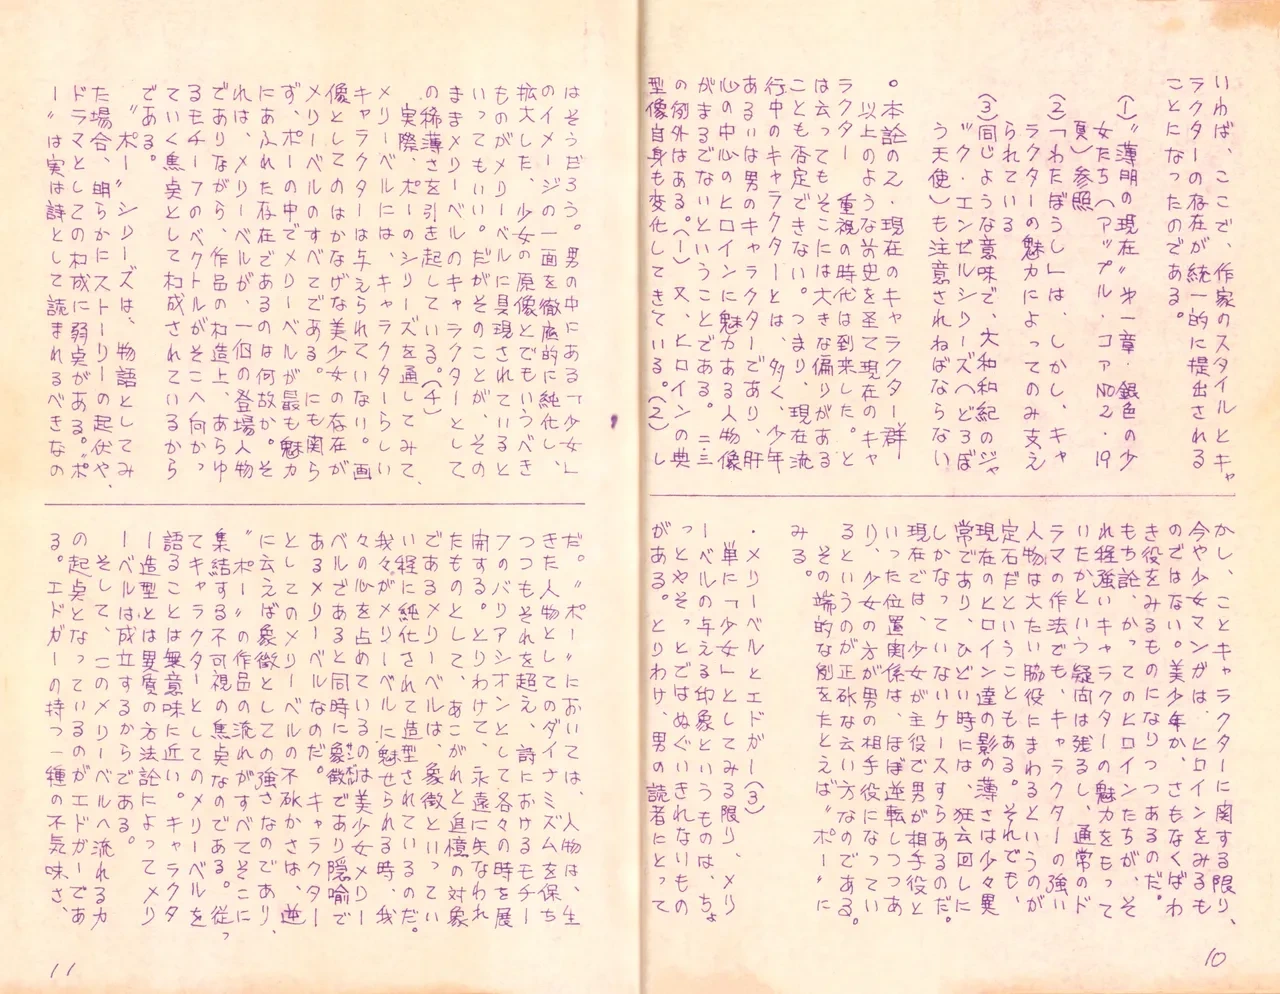 いわば、ここで、作家のスタイルとキャ
ラクターの存在が統一的に提出される
ことになったのである。
(1)〝薄明の現在〟第一章・銀色の少
女たち(アップル・コアNO2・19
頁)参照
(2)「わたぼうし」は、しかし、キャ
ラクターの魅力によってのみ支え
られている
(3)同じような意味で、大和和紀のジャ
ック・エンゼルシリーズへどろぼ
う天使)も注意されねばならない
○本論の2・現在のキャラクター群
以上のような前史を圣て現在のキャ
ラクター 重視の時代は到来した。と
は云ってもそこには大きな偏りがある
ことも否定できない。つまり、現在流
行中のキャラクターとは、多く、少年
あるいは男のキャラクターであり、肝
心の中心のヒロインに魅力ある人物像
がまるでないということである。二三
の例外はある。(1)又、ヒロインの典
型像自身も変化してきている。(2)し
かし、ことキャラクターに関する限り、
今や少女マンガは、ヒロインをみるも
のではない。美少年か、さもなくばわ
き役をみるものになりつつあるのだ。
もち論、かってのヒロインたちが、そ
れ程強いキャラクターの魅力をもって
いたかという疑問は残るし、通常のド
ラマの作法でも、キャラクターの強い
人物は大たい脇役にまわるというのが
定石だということもある。それでも、
現在のヒロイン達の影の薄さは少々異
常であり、ひどい時には、狂云回しに
しかなっていないケースすらあるのだ。
現在では、少女が主役で男が相手役と
いった位置関係は、ほぼ逆転しつつあ
り、少女の方が男の相手役になってい
るというのが正砿な云い方なのである。
その端的な例をたとえば〝ポー〟に
みる。
・メリーベルとエドガー(3)
単に「少女」としてみる限り、メリ
ーベルの与える印象というものは、ちょ
っとやそっとではぬぐいきれないもの
がある。とりわけ、男の読者にとって
はそうだろう。男の中にある「少女」
のイメージの一面を徹底的に純化し、
拡大した、少女の原像とでもいうべき
ものがメリーベルに具現されていると
いってもいい。だがそのことが、その
ままメリーベルのキャラクターとして
の稀薄さを引き起している。(4)
実際、ポーのシリーズを通してみて、
メリーベルには、キャラクターらしい
キャラクターは与えられていない。画
像としてのはかなげな美少女の存在が
メリーベルのすべてである。にも関ら
ず、ポーの中でメリーベルが最も魅力
にあふれた存在であるのは何故か。そ
れは、メリーベルが、一個の登場人物
でありながら、作品の構造上、あらゆ
るモチーフのベクトルがそこへ向かっ
ていく焦点として構成されているから
である。
〝ポー〟シリーズは、物語としてみ
た場合、明らかにストーリーの起伏や、
ドラマとしての構成に弱点がある。〝ポ
ー〟は実は詩として読まれるべきなの
だ。〝ポー〟においては、人物は、生
きた人物としてのダイナミズムを保ち
つつもそれを超え、詩におけるモチー
フのバリアシオンとして各々の時を展
開する。とりわけて、永遠に失なわれ
たものとして、あこがれと追憶の対象
であるメリーベルは、象徴といってい
い程に純化されて造型されているのだ。
我々がメリーベルに魅せられる時、我
々の心を占めているのは美少女メリー
ベルであると同時に象徴であり隠喩で
あるメリーベルなのだ。キャラクター
としてのメリーベルの不砿かさは、逆
に云えば象徴としての強さなのであり、
〝ポー〟の作品の流れがすべてそこに
集結する不可視の焦点なのである。従っ
てキャラクターとしてのメリーベルを
語ることは無意味に近い。キャラクタ
ー造型とは異質の方法論によってメリ
ーベルは成立するからである。
そして、このメリーベルへ流れる力
の起点となっているのがエドガーであ
る。エドガーの持つ一種の不気味さ、
10
11